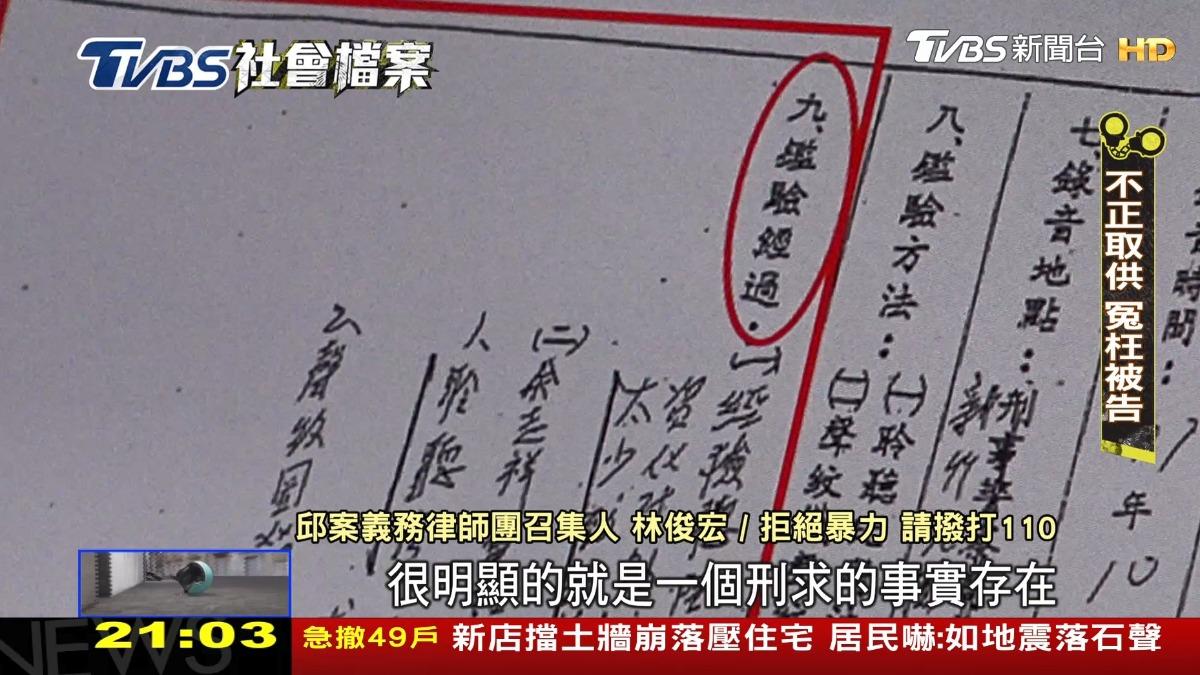 TVBS社會檔案
TVBS新聞台 HD
不正取供 冤枉被告
七、錄音地點：
八、鑑驗方法：(一)聆聽
(二)聲紋
九、鑑驗經過：(一)經
(二)余志祥
人聆聽
太少
年10
邱案義務律師團召集人 林俊宏 / 拒絕暴力 請撥打110
很明顯的就是一個刑求的事實存在
21:03
急撤49戶 新店擋土牆崩落壓住宅 居民嚇:如地震落石聲
NEWS